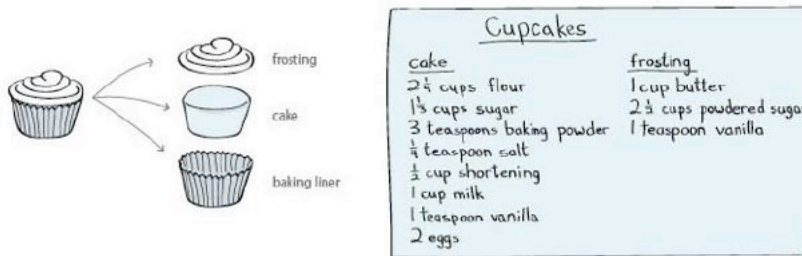 frosting
cake
baking liner
Cupcakes
cake
2¼ cups flour
1⅓ cups sugar
3 teaspoons baking powder
¼ teaspoon salt
½ cup shortening
1 cup milk
1 teaspoon vanilla
2 eggs
frosting
1 cup butter
2½ cups powdered sugar
1 teaspoon vanilla